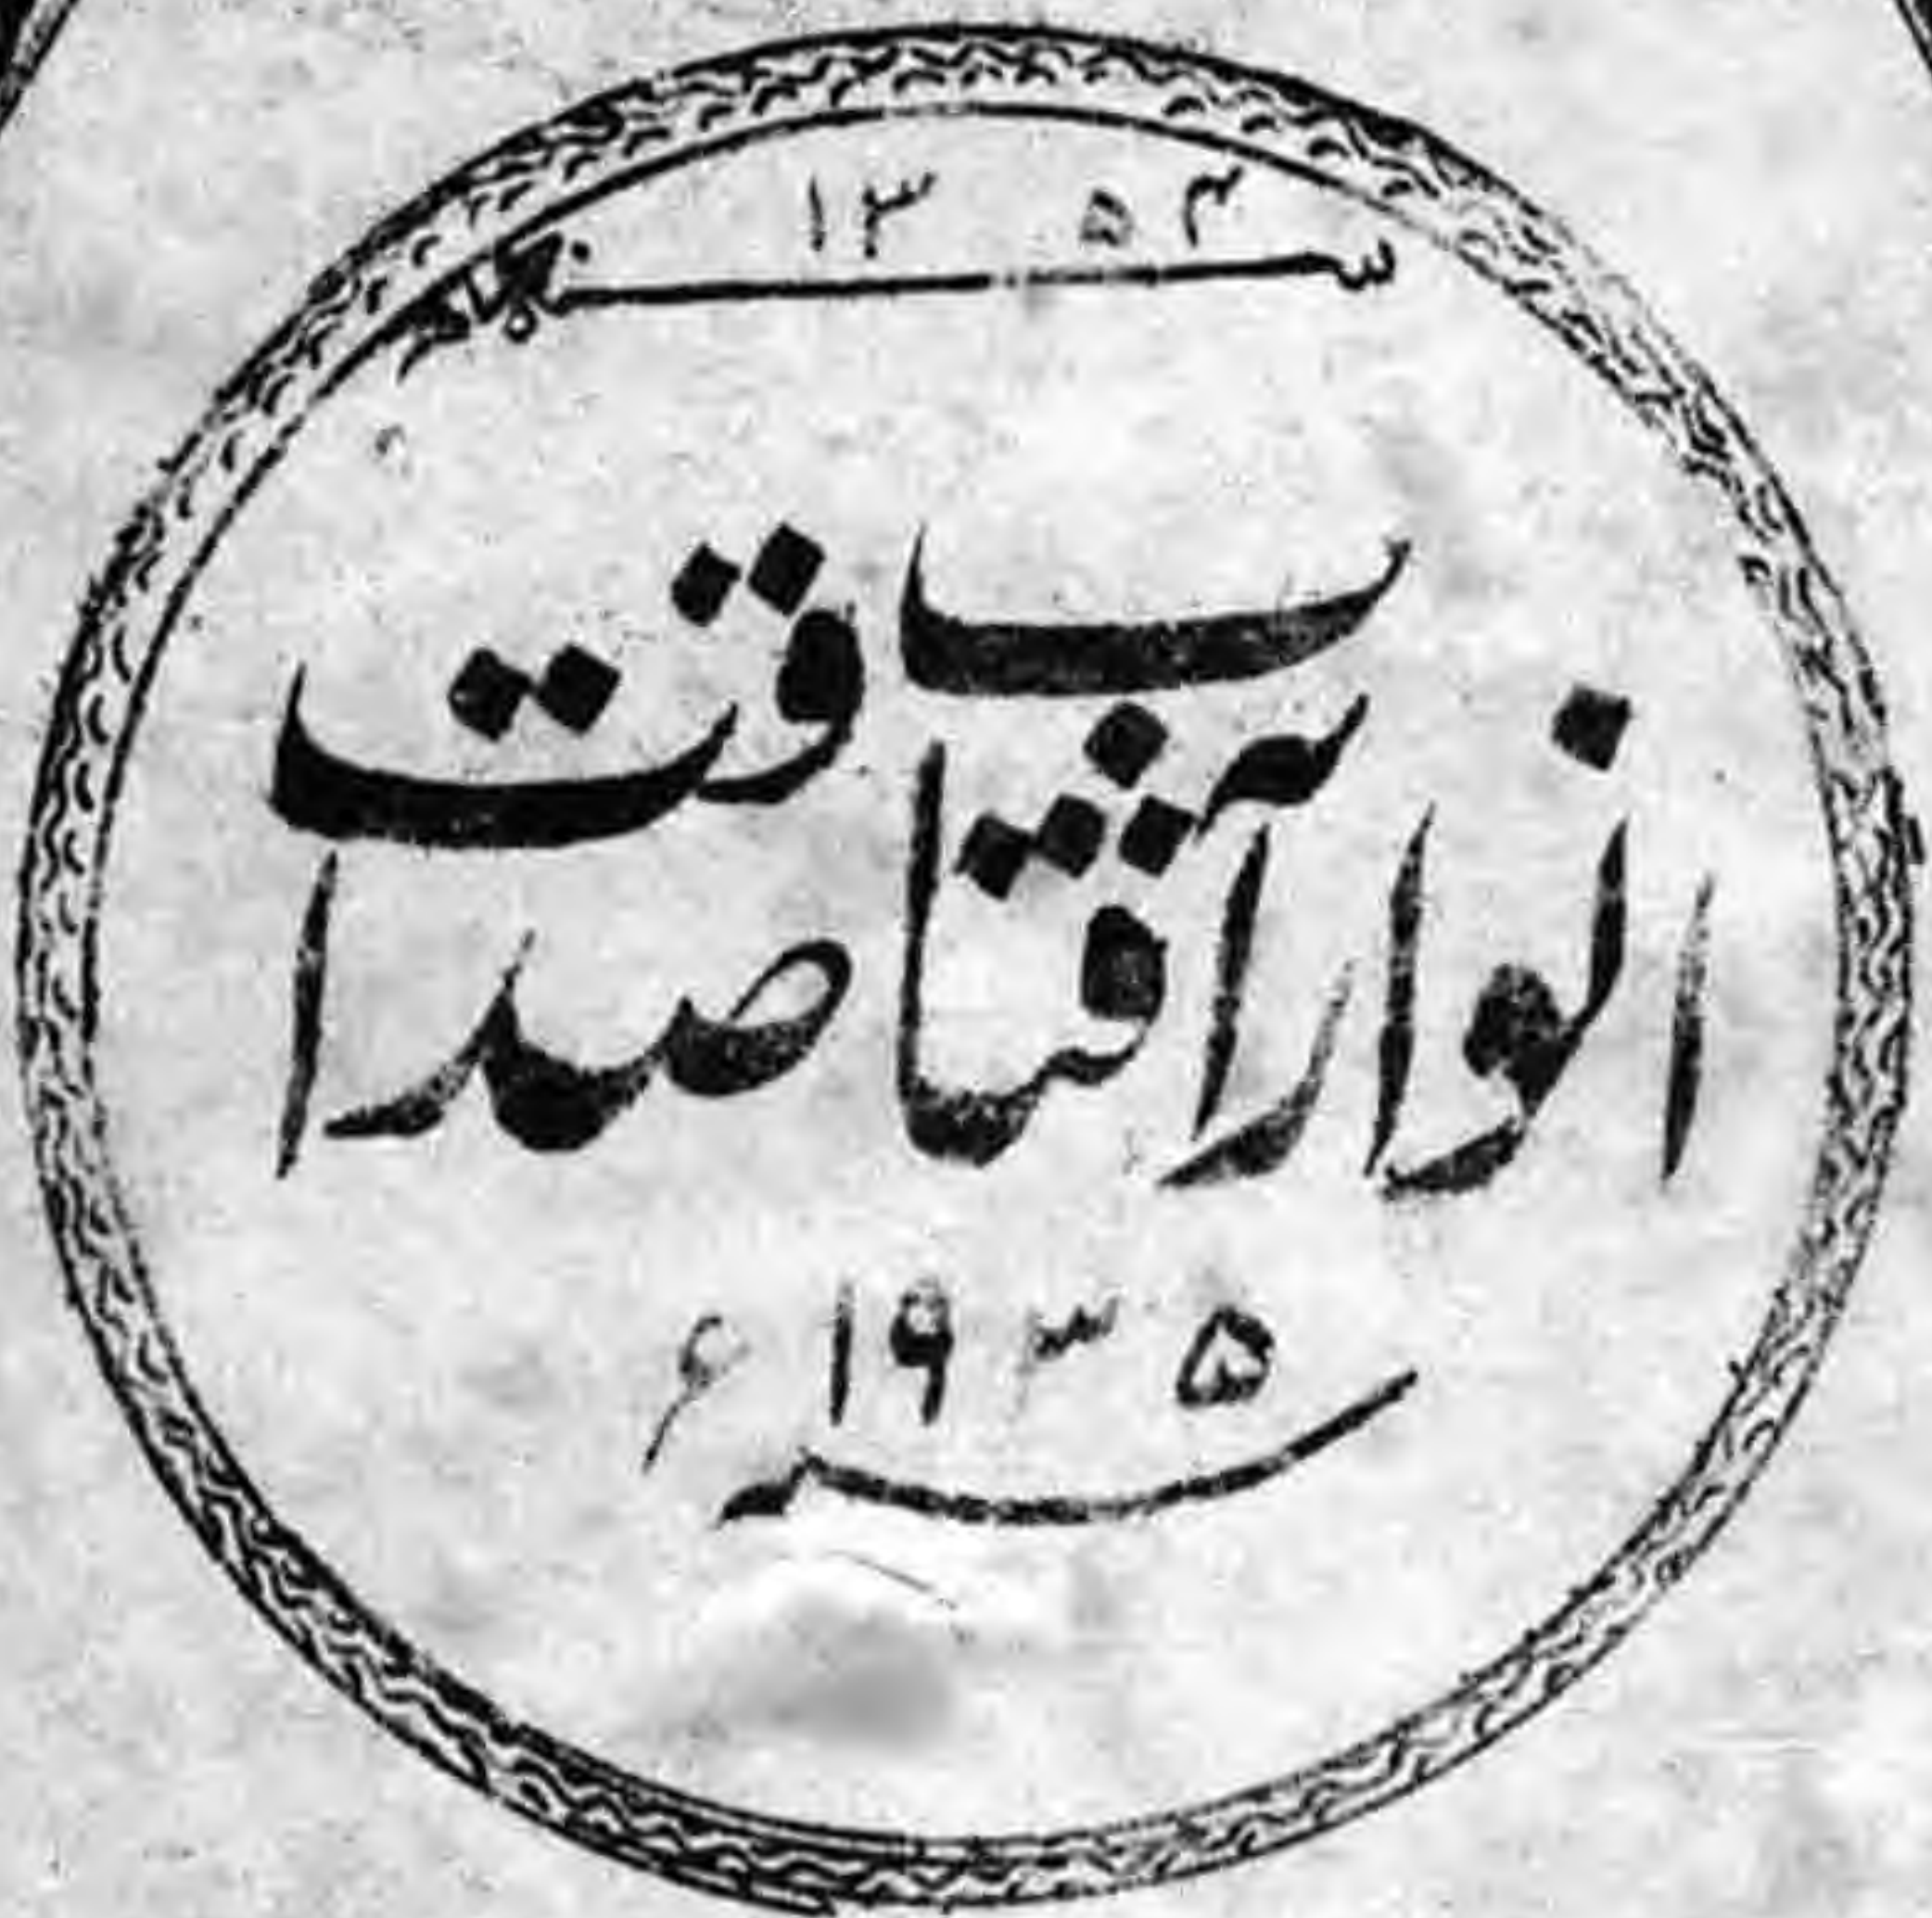 سنہ ۱۳۵۴ ہجری
انوار آفتاب صداقت
۱۹۳۵ء